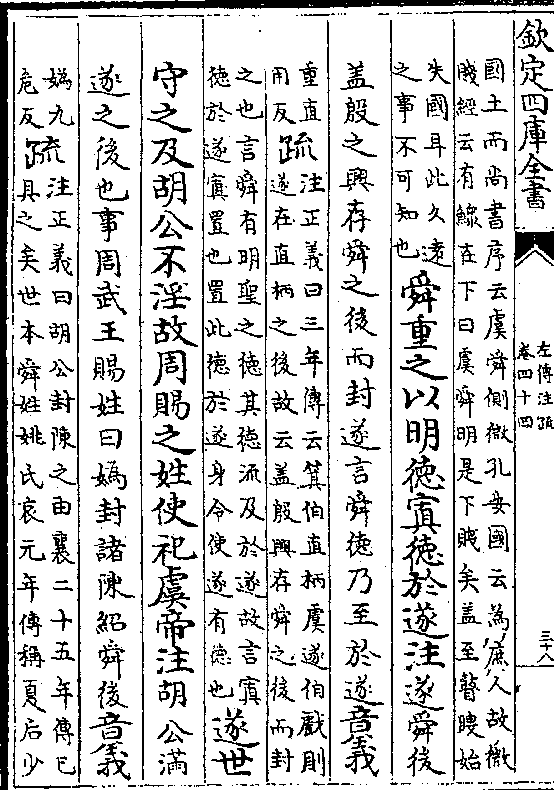 欽定四庫全書
左傳注疏
卷四十四
三十八
國土而尚書序云虞舜側微孔安國云為庶人故微
賤經云有鰥在下曰虞舜明是下賤矣蓋至瞽瞍始
失國耳此久遠
之事不可知也
舜重之以明徳寘徳於遂注遂舜後
蓋殷之興存舜之後而封遂言舜徳乃至於遂音義
重直
用反
疏
注正義曰三年傳云箕伯直柄虞遂伯戲則
遂在直柄之後故云蓋殷興存舜之後而封
之也言舜有明聖之徳其徳流及於遂故言寘
徳於遂寘置也置此徳於遂身令使遂有徳也
遂世
守之及胡公不淫故周賜之姓使祀虞帝注胡公滿
遂之後也事周武王賜姓曰媯封諸陳紹舜後音義
媯九
危反
疏
注正義曰胡公封陳之由襄二十五年傳已
具之矣世本舜姓姚氏哀元年傳稱夏后少